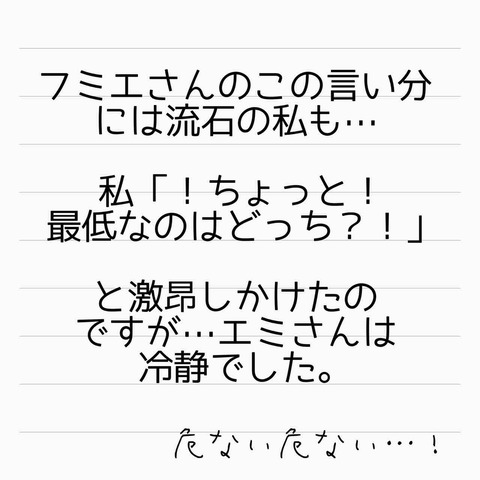 フミエさんのこの言い分
には流石の私も…
私「！ちょっと！
最低なのはどっち？！」
と激昂しかけたの
ですが…エミさんは
冷静でした。
危ない危ない…！